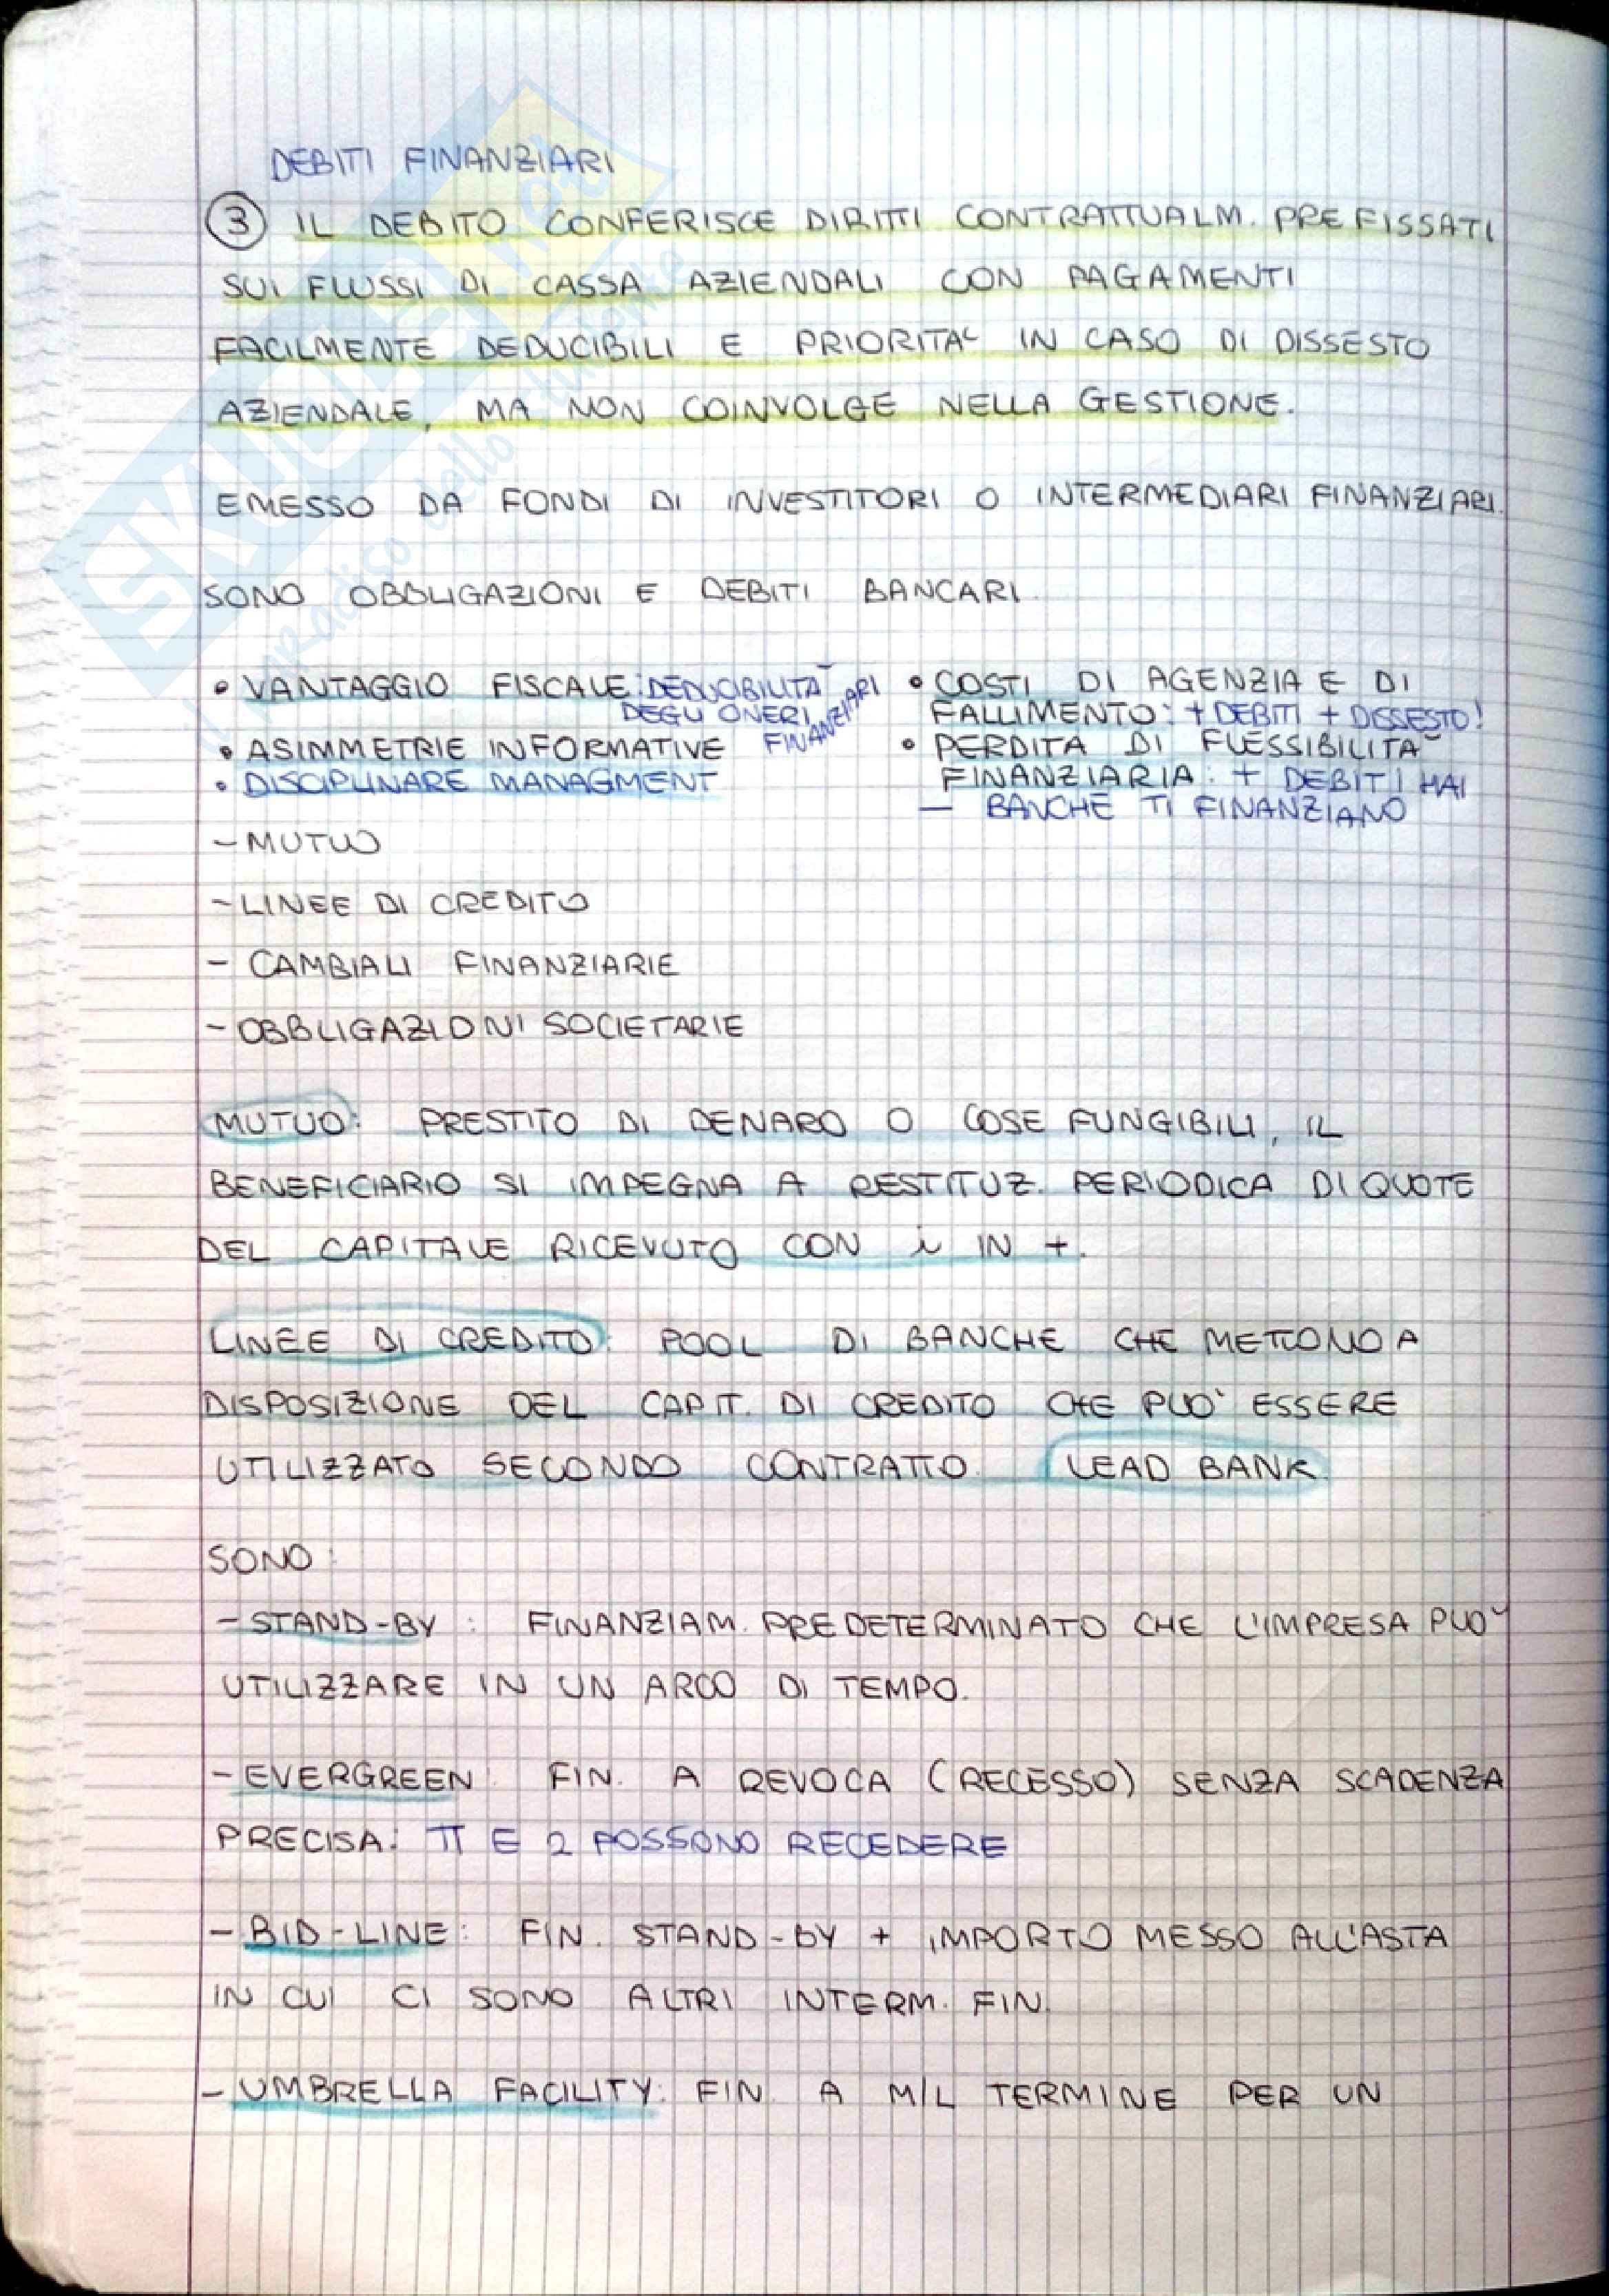 DEBITI FINANZIARI
③ IL DEBITO CONFERISCE DIRITTI CONTRATTUALM. PREFISSATI
SUI FLUSSI DI CASSA AZIENDALI CON PAGAMENTI
FACILMENTE DEDUCIBILI E PRIORITA' IN CASO DI DISSESTO
AZIENDALE, MA NON COINVOLGE NELLA GESTIONE.
EMESSO DA FONDI DI INVESTITORI O INTERMEDIARI FINANZIARI.
SONO OBBLIGAZIONI E DEBITI BANCARI.
• VANTAGGIO FISCALE: DEDUCIBILITA'
DEGLI ONERI FINANZIARI
• ASIMMETRIE INFORMATIVE
• DISCIPLINARE MANAGMENT
• COSTI DI AGENZIA E DI
FALLIMENTO: + DEBITI + DISSESTO!
• PERDITA DI FLESSIBILITA'
FINANZIARIA: + DEBITI HAI
— BANCHE TI FINANZIANO
- MUTUO
- LINEE DI CREDITO
- CAMBIALI FINANZIARIE
- OBBLIGAZIONI SOCIETARIE
MUTUO: PRESTITO DI DENARO O COSE FUNGIBILI, IL
BENEFICIARIO SI IMPEGNA A RESTITUZ. PERIODICA DI QUOTE
DEL CAPITALE RICEVUTO CON i IN +.
LINEE DI CREDITO: POOL DI BANCHE CHE METTONO A
DISPOSIZIONE DEL CAPIT. DI CREDITO CHE PUO' ESSERE
UTILIZZATO SECONDO CONTRATTO. LEAD BANK
SONO:
- STAND-BY: FINANZIAM. PREDETERMINATO CHE L'IMPRESA PUO'
UTILIZZARE IN UN ARCO DI TEMPO.
- EVERGREEN: FIN. A REVOCA (RECESSO) SENZA SCADENZA
PRECISA: TT E 2 POSSONO RECEDERE
- BID-LINE: FIN. STAND-BY + IMPORTO MESSO ALL'ASTA
IN CUI CI SONO ALTRI INTERM. FIN.
- UMBRELLA FACILITY: FIN. A M/L TERMINE PER UN
SKUOLA.net
Il paradiso dello studente